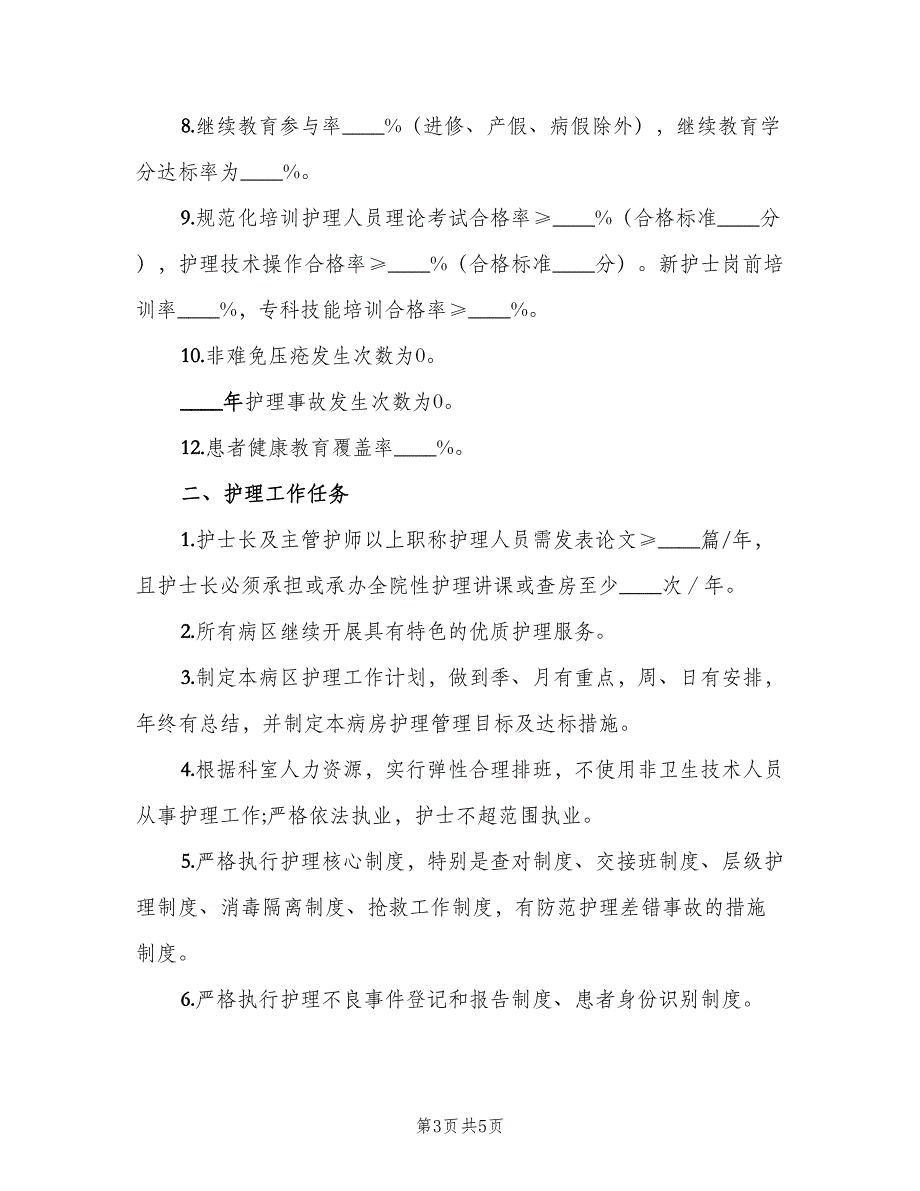 8.继续教育参与率____%（进修、产假、病假除外），继续教育学
分达标率为____%。
9.规范化培训护理人员理论考试合格率≥____%（合格标准____分
），护理技术操作合格率≥____%（合格标准____分）。新护士岗前培
训率____%，专科技能培训合格率≥____%。
10.非难免压疮发生次数为0。
____年护理事故发生次数为0。
12.患者健康教育覆盖率____%。
二、护理工作任务
1.护士长及主管护师以上职称护理人员需发表论文≥____篇/年，
且护士长必须承担或承办全院性护理讲课或查房至少____次／年。
2.所有病区继续开展具有特色的优质护理服务。
3.制定本病区护理工作计划，做到季、月有重点，周、日有安排，
年终有总结，并制定本病房护理管理目标及达标措施。
4.根据科室人力资源，实行弹性合理排班，不使用非卫生技术人员
从事护理工作;严格依法执业，护士不超范围执业。
5.严格执行护理核心制度，特别是查对制度、交接班制度、层级护
理制度、消毒隔离制度、抢救工作制度，有防范护理差错事故的措施
制度。
6.严格执行护理不良事件登记和报告制度、患者身份识别制度。
第3页共5页